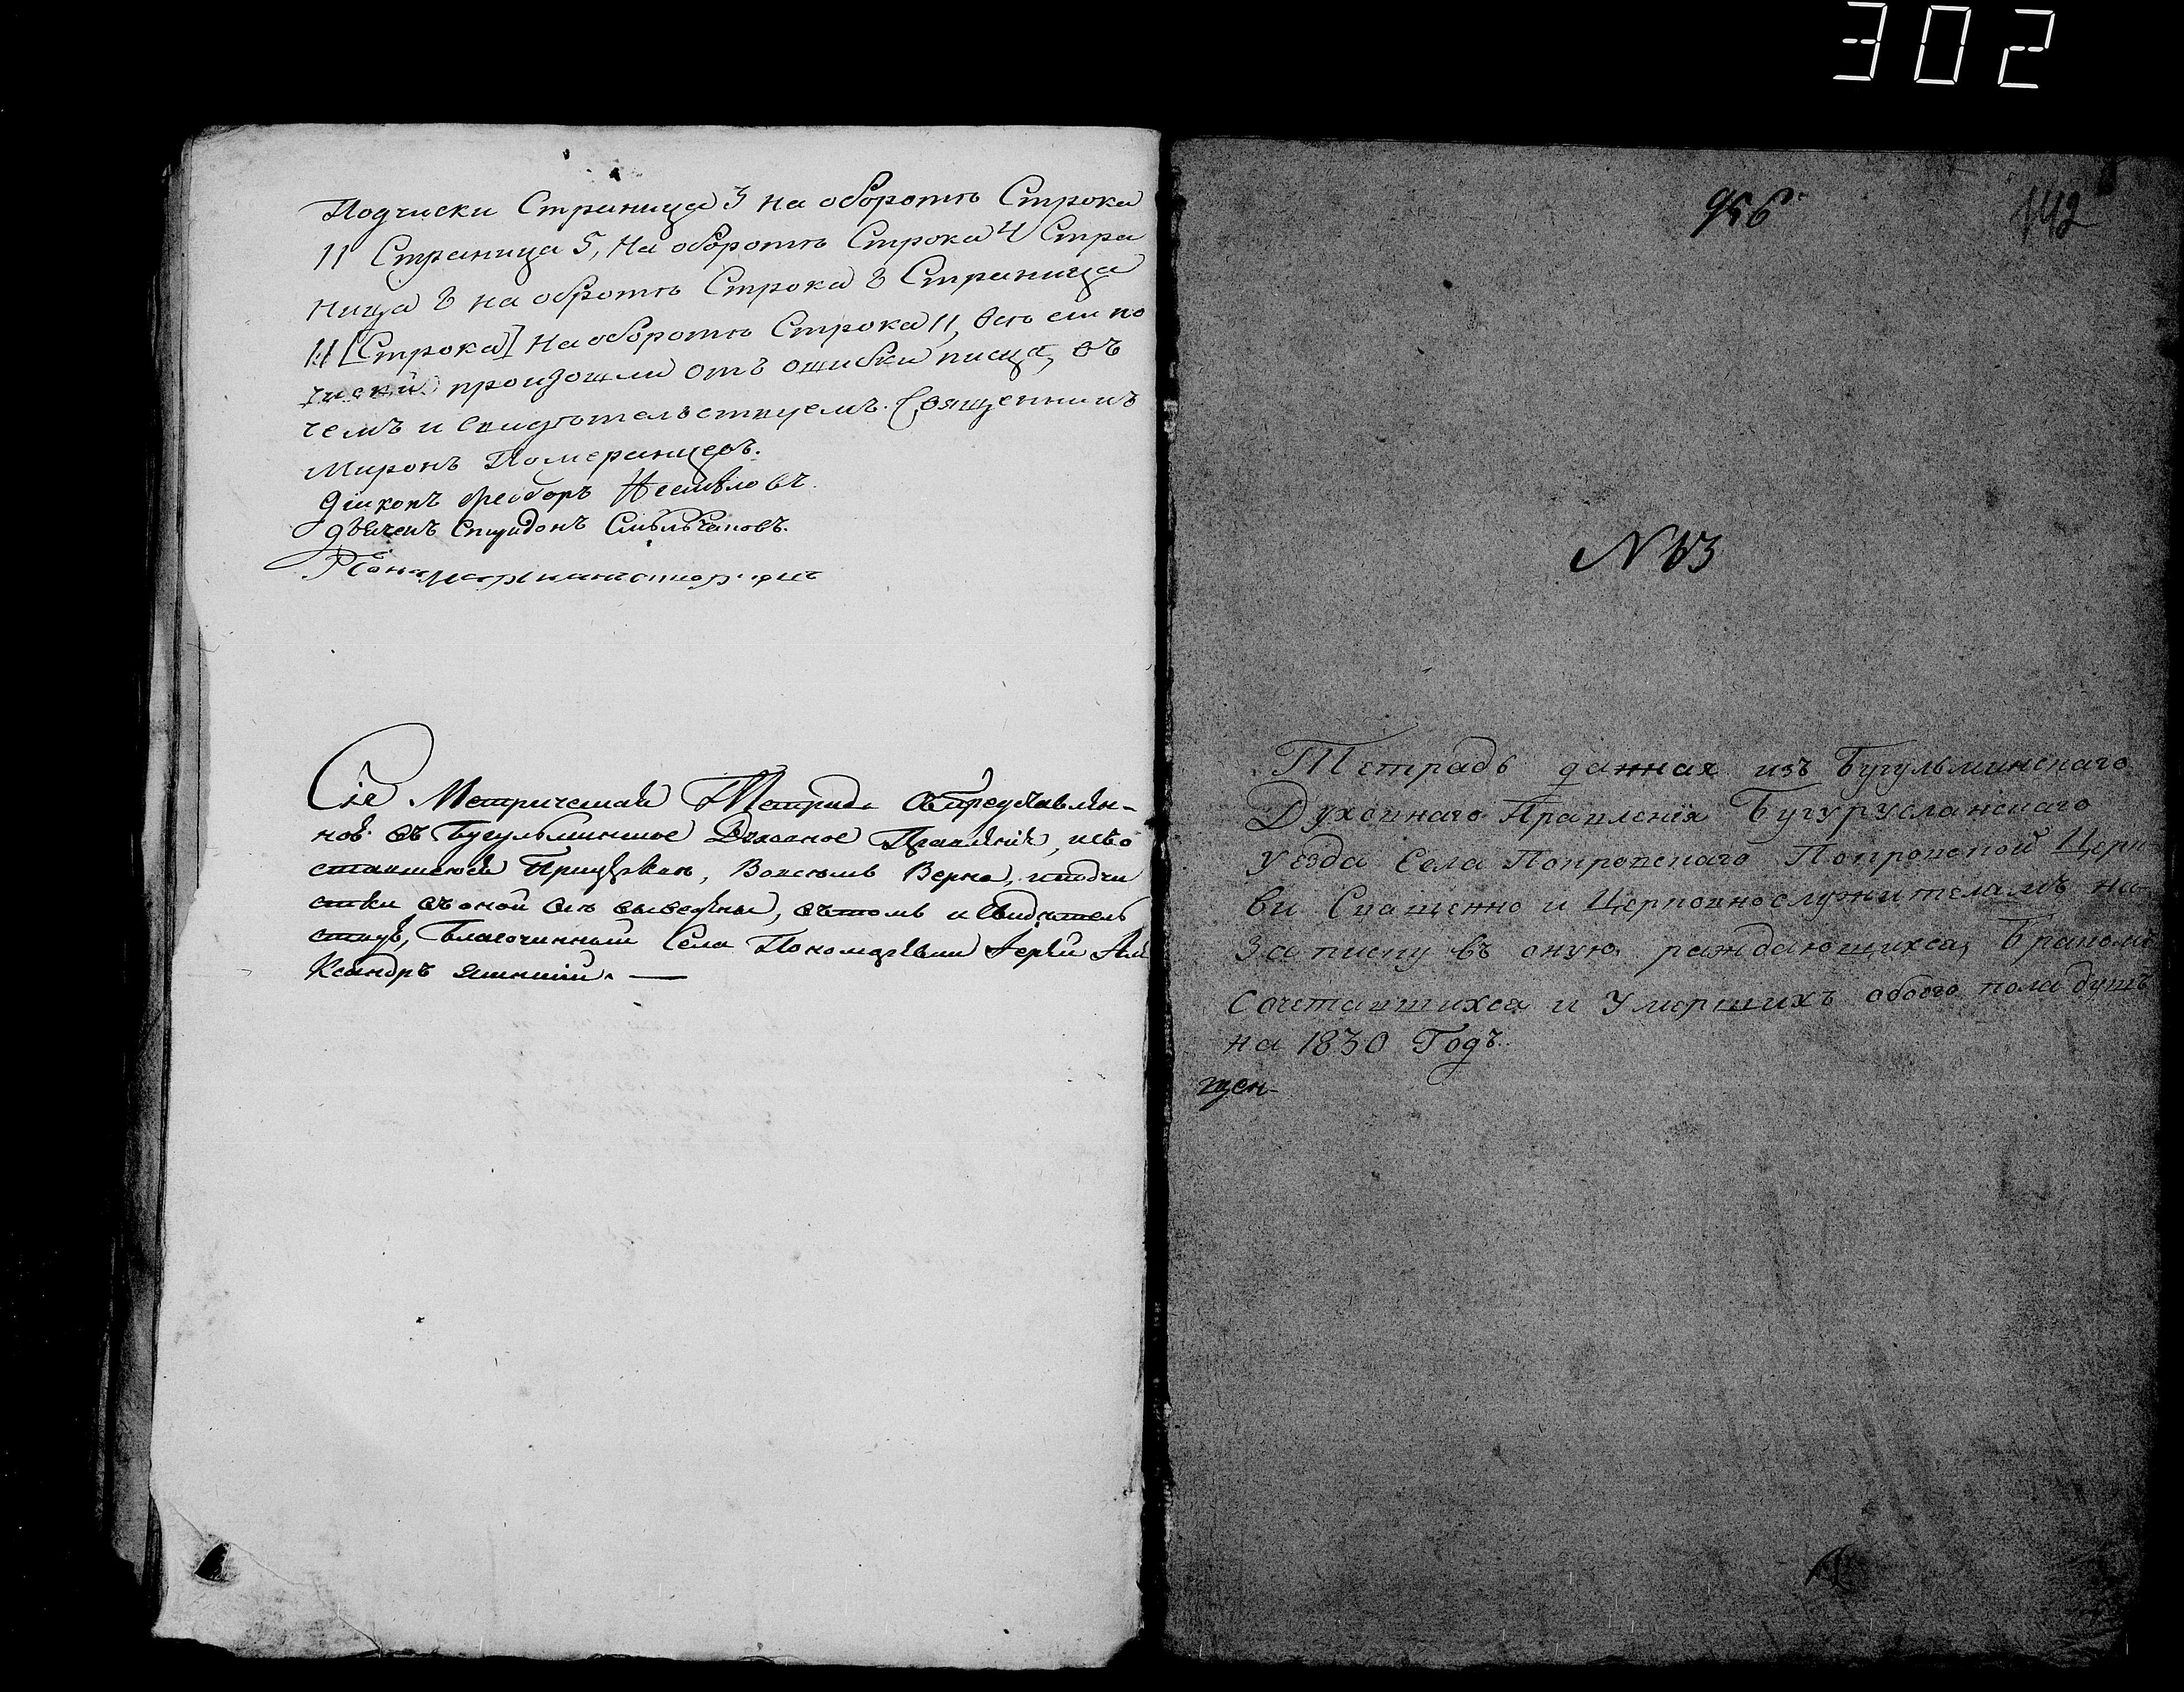 302
Подчиски Страница 3 на оборотѣ Строка
11 Страница 5, На оборотѣ Строка 4 Стра
ница 8 на обротѣ Строка 8 Страница
11 [Строка] На оборотѣ Строка 11, всѣ сіи по
чиски произошли отъ ошибки писца, въ
чемъ и свидѣтельствуемъ. Священникъ
Миронъ Померанцевъ.
Діяконъ Феодоръ Несмѣловъ.
Дьячекъ Спиридонъ
Сіе Метрическая Тетрадь
въ Бугульминское Духовное Правленіе,
Верна,
въ оной, въ томъ и Свидѣтель
ствую, Благочинный Села Іерей Але
ксандръ
956
142
N 63
Тетрадь данная изъ Бугульминскаго
Духовнаго Правленія Бугурусланскаго
уезда Села Покровскаго Покровской Церк
ви Священно и Церковнослужителямъ на
записку въ оную раждающихся, Бракомъ
Сочетавшихся и Умершихъ обоего пола душъ
на 1830 Годъ.
щен-